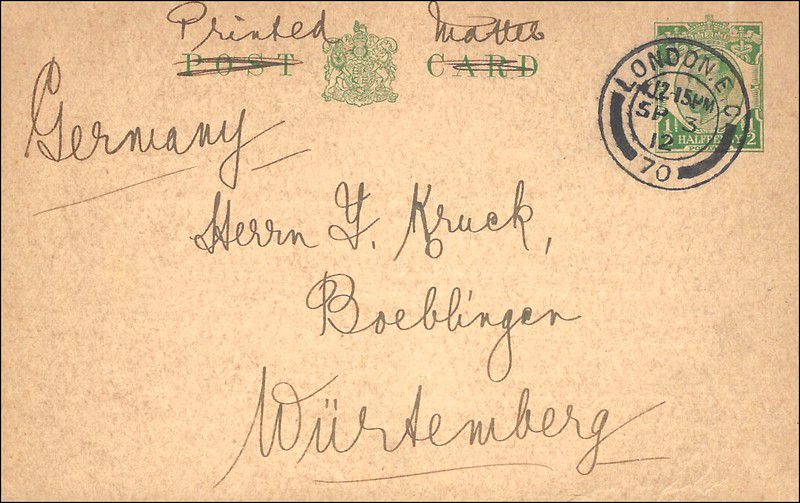 Printed Matter
POST CARD
LONDON. E.C.
12.15PM
SP 3
12
70
HALFPENNY
Germany
Herrn Y. Kruck,
Boeblingen
Würtemberg